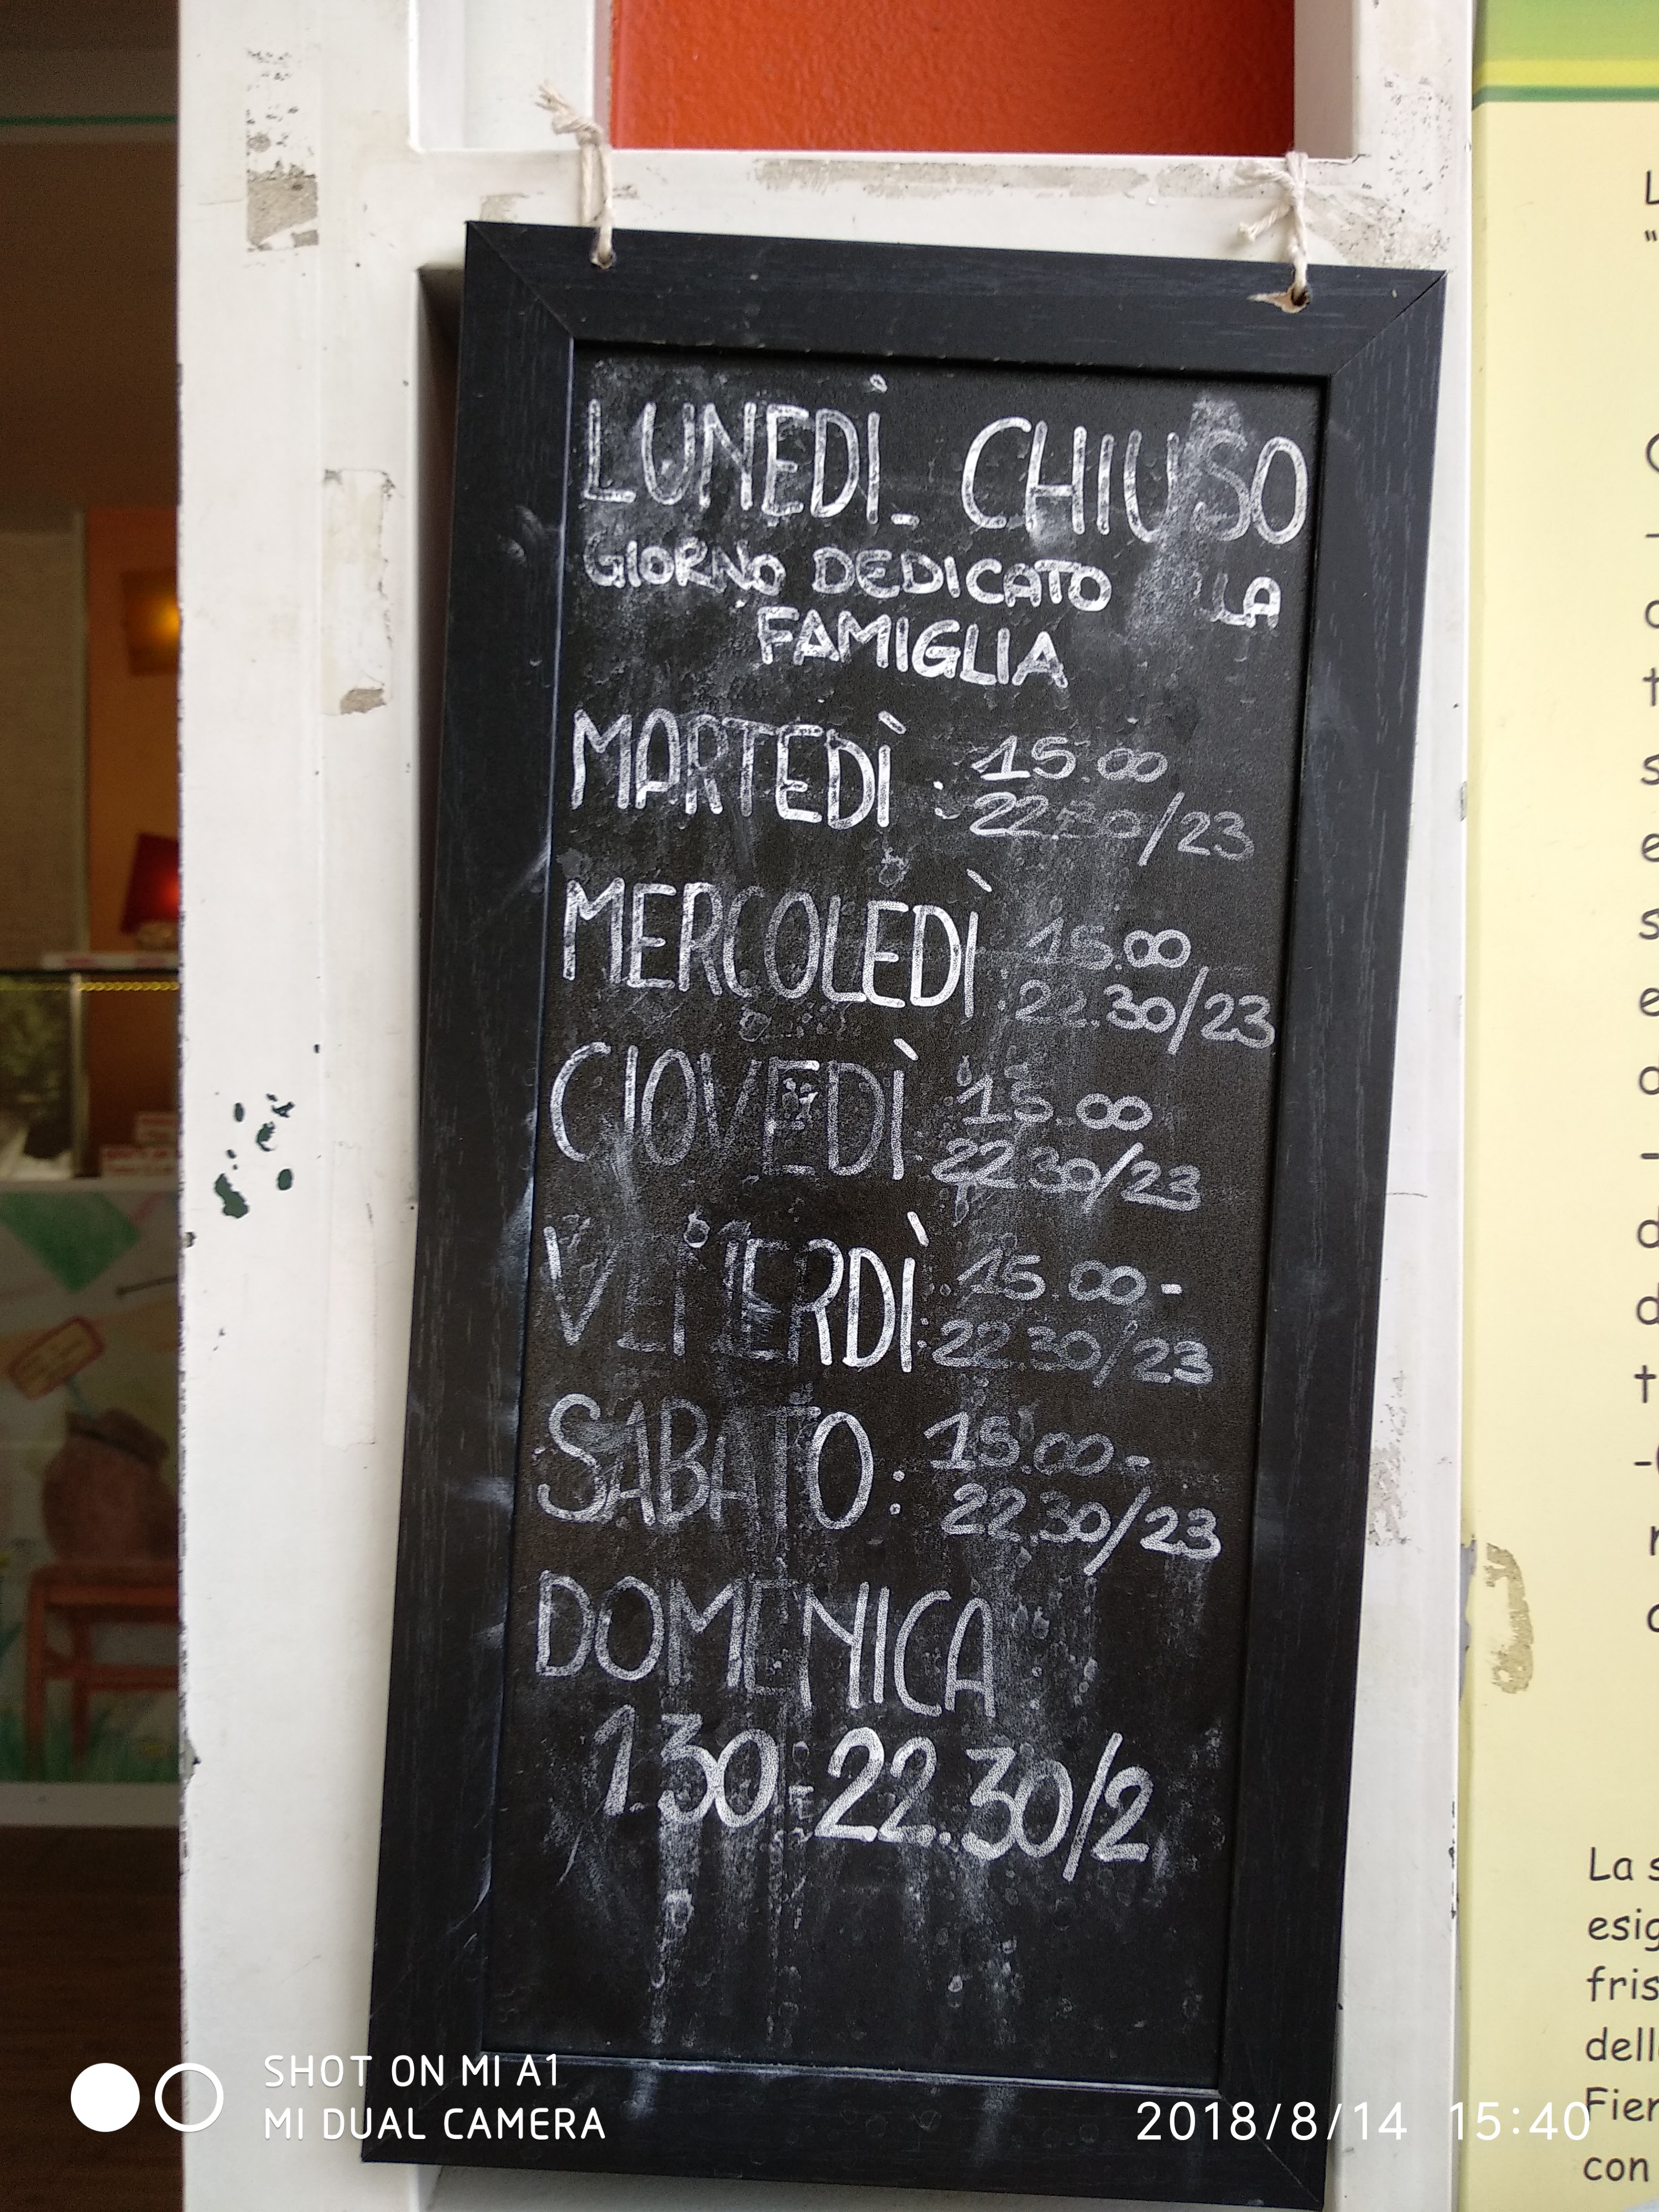 LUNEDÌ_ CHIUSO
GIORNO DEDICATO LLA
FAMIGLIA
MARTEDÌ: 15.00
22.30/23
MERCOLEDÌ 15.00
22.30/23
GIOVEDÌ: 15.00
22.30/23
VENERDÌ: 15.00-
22.30/23
SABATO: 15.00-
22.30/23
DOMENICA
1.30-22.30/2
La s
esig
fris
dell
Fier
con
SHOT ON MI A1
MI DUAL CAMERA
2018/8/14 15:40